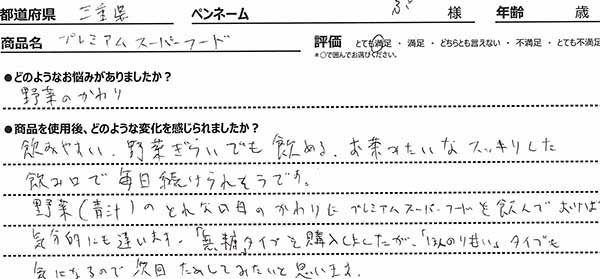 都道府県 三重県 ペンネーム ぷ 様 年齢 歳
商品名 プレミアムスーパーフード 評価 とても満足・満足・どちらとも言えない・不満足・とても不満足
*○で囲んでお選びください。
●どのようなお悩みがありましたか?
野菜のかわり
●商品を使用後、どのような変化を感じられましたか?
飲みやすい、野菜ぎらいでも飲める、お茶みたいなスッキリした
飲み口で毎日続けられそうです。
野菜(青汁)のとれない日のかわりにプレミアムスーパーフードを飲んでおけば
気分的にも違います。「無糖」タイプを購入しましたが、「ほんのり甘い」タイプも
気になるので次回ためしてみたいと思います。